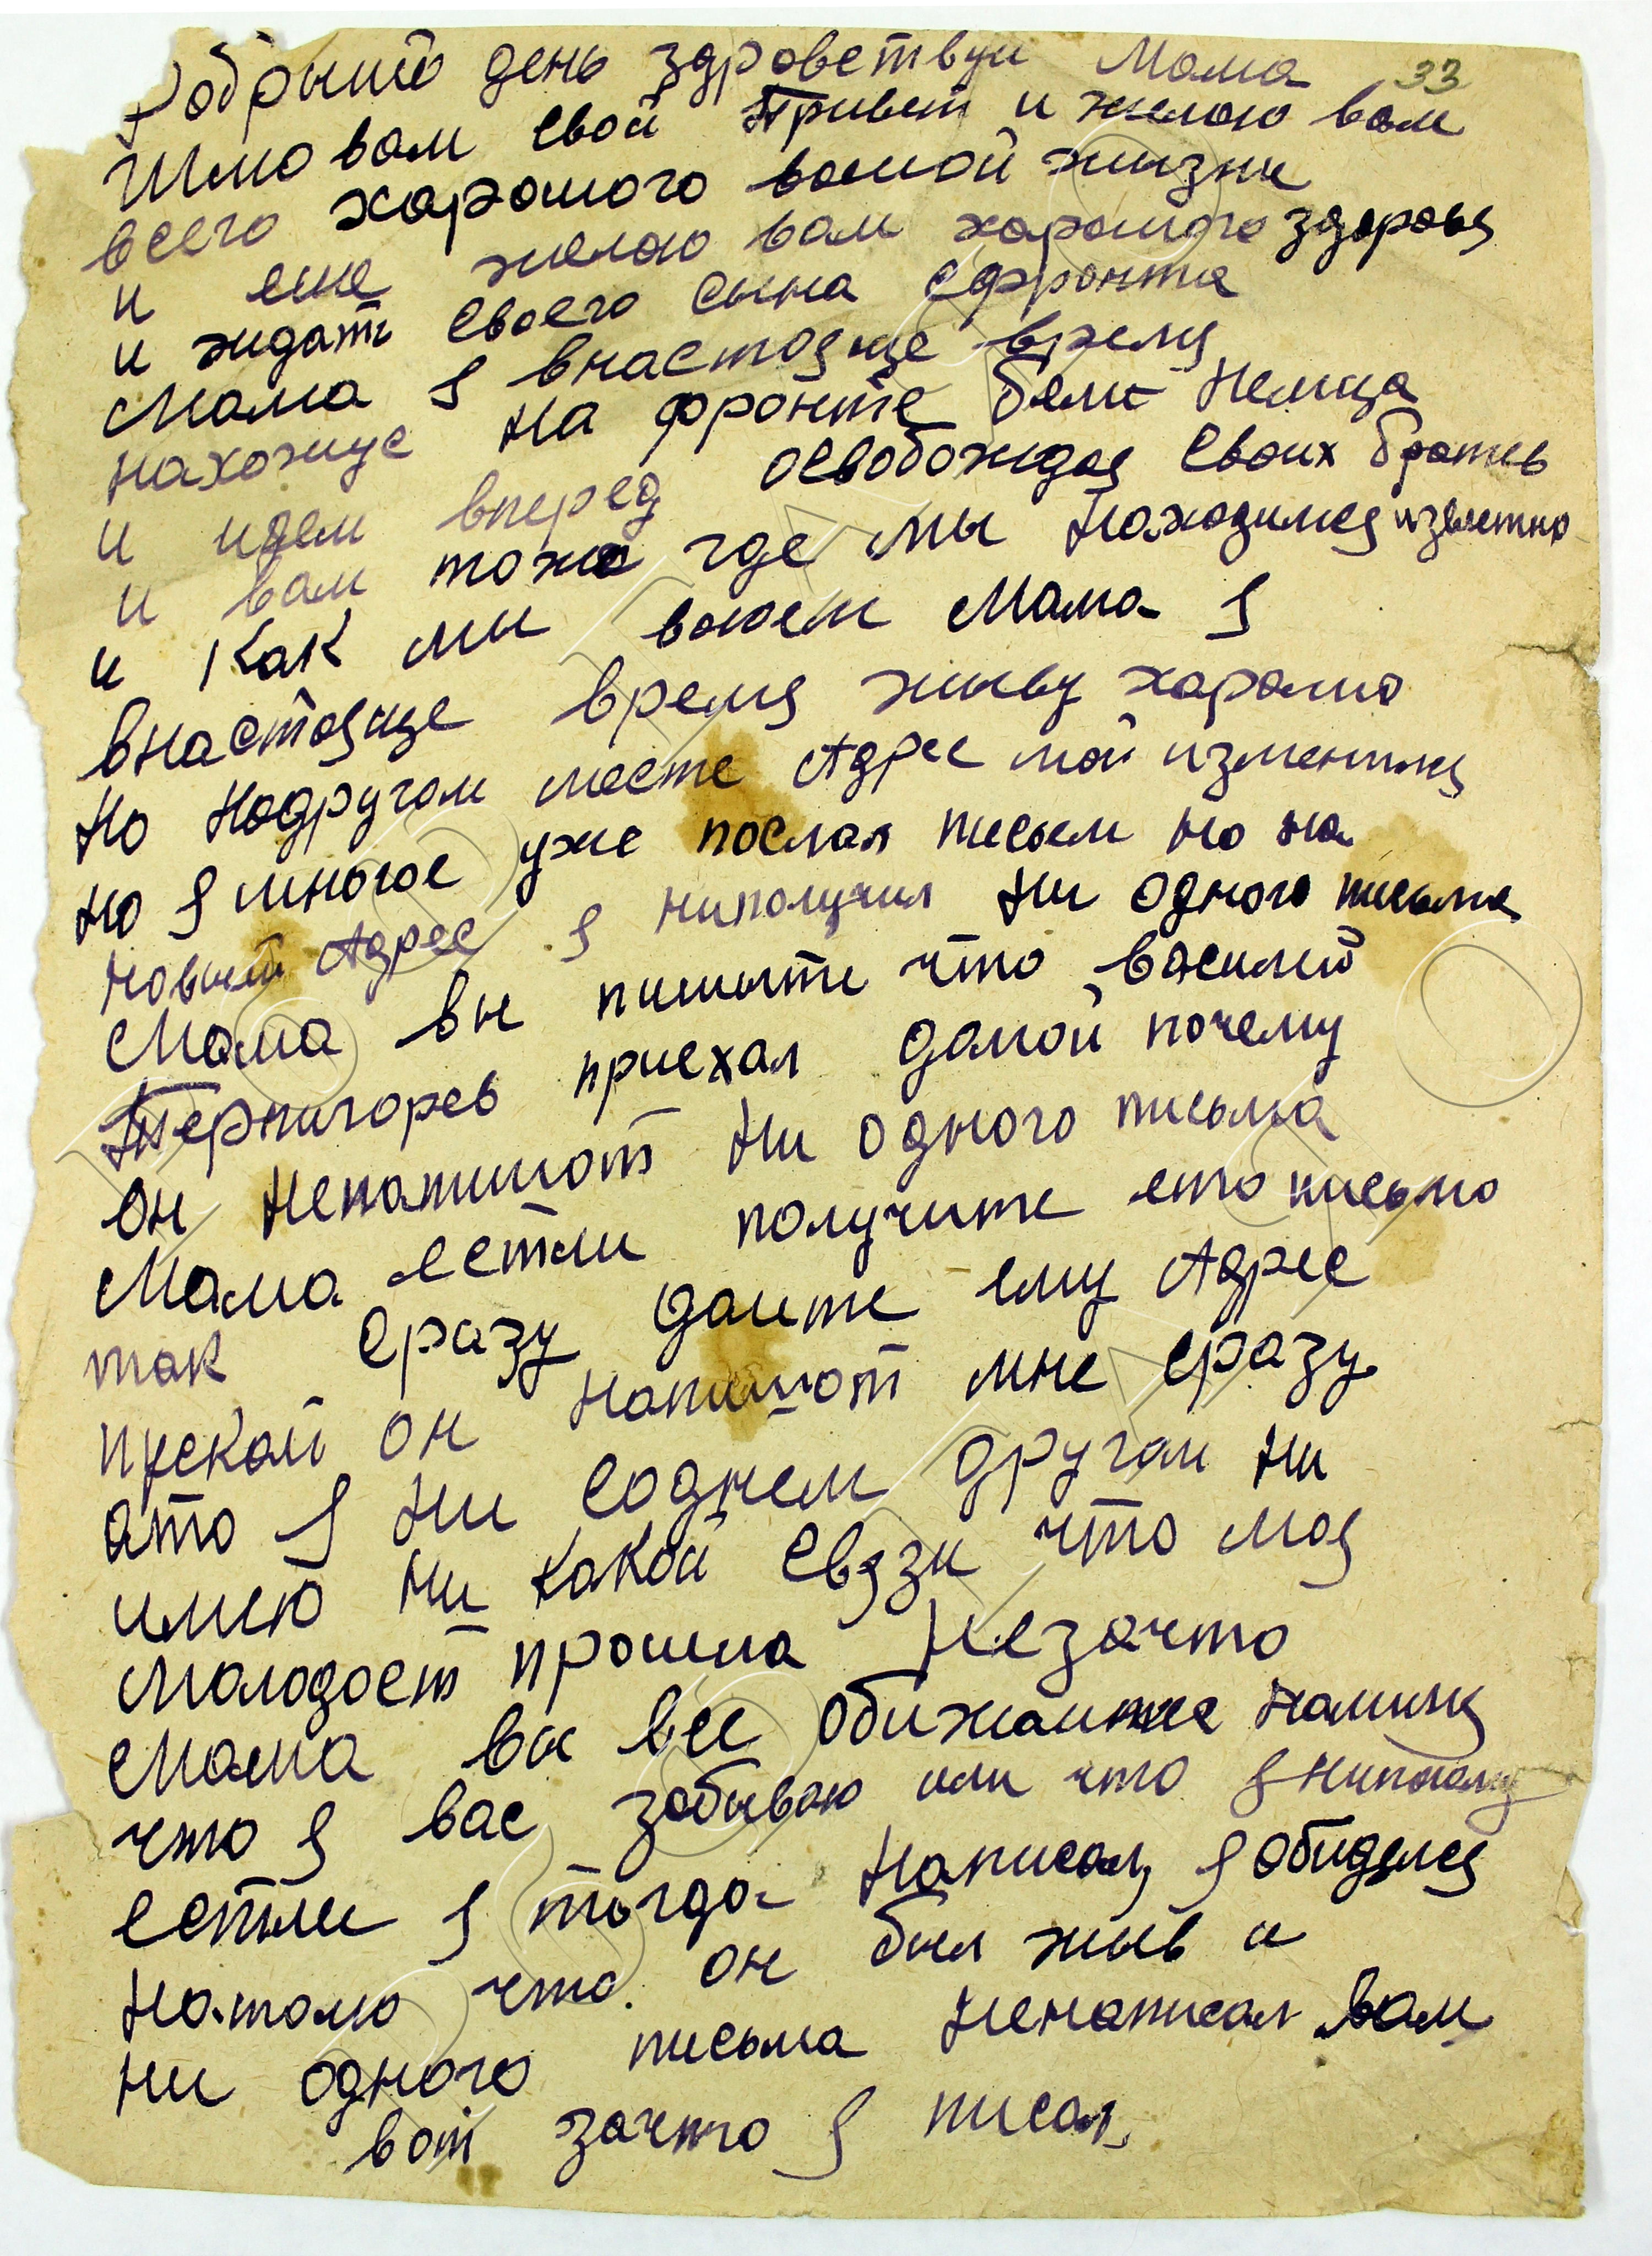 33
Добрыий день здровствуй Мама
Шлю вам свой Привет и желаю вам
всего харошого вашой жизни
и еще желаю вам харошого здоровя
и ждать своего сына сфронта
Мама я внастояще время
нахожус на фронте бем немца
и идем вперед освобождоя своих братев
и вам тоже где мы находимся известно
и Как мы воюем Мама я
внастояще время живу харашо
но надругом месте Адрес мой изменился
но я многое уже послал писем но на
новый Адрес я ниполучил ни одного писма
Мама вы пишыте что василий
Терпигорев приехал домой почему
он непопишот ни одного письма
Мама естли получите ето письмо
так сразу даите ему Адрес
пускай он напишот мне сразу
ато я ни соднем другом ни
имею ни какой связи что моя
молодост прошла незачто
Мама вы все обижаитес наминя
что я вас забываю или что я
естли я тогда написал я обиделся
натого что он был жив и
ни одного письма ненаписал вам
вот зачто я писал